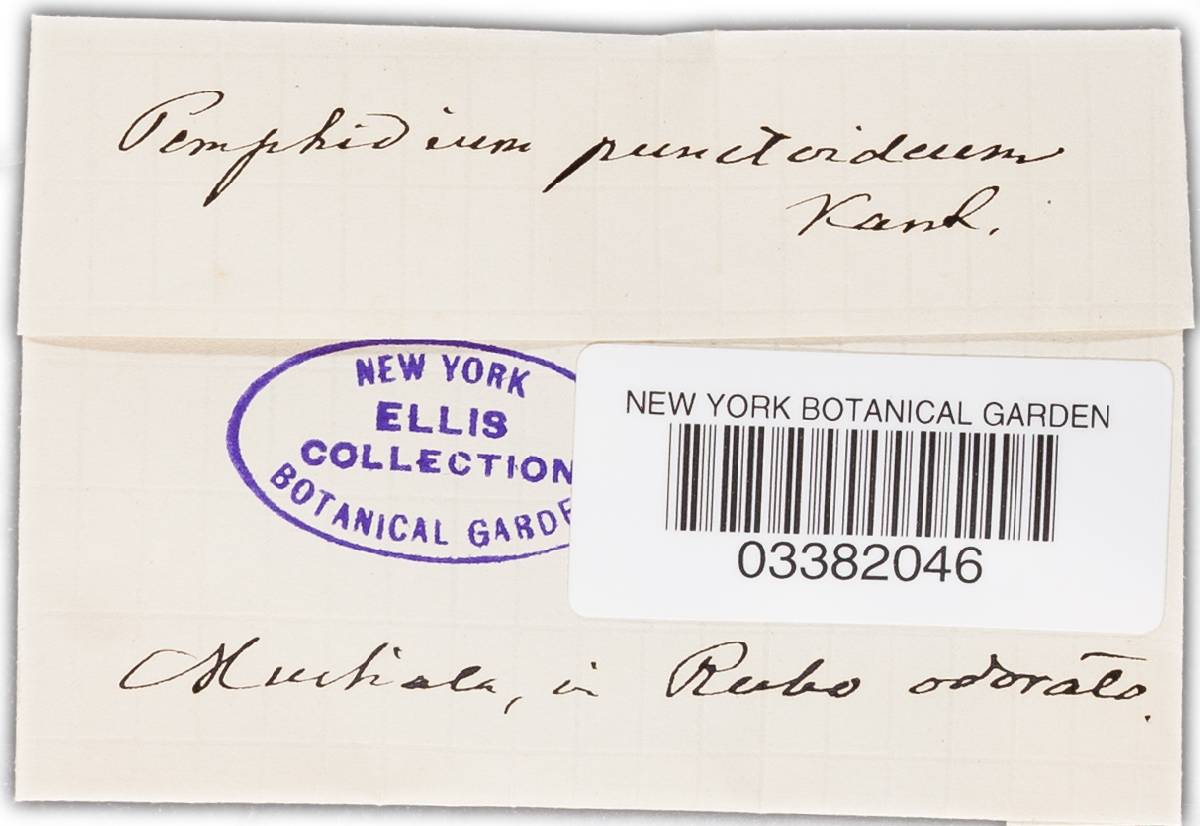 Pemphidium punctoideum
Karst.
NEW YORK
ELLIS
COLLECTION
BOTANICAL GARDE
NEW YORK BOTANICAL GARDEN
03382046
Mustiala, in Rubo odorato.